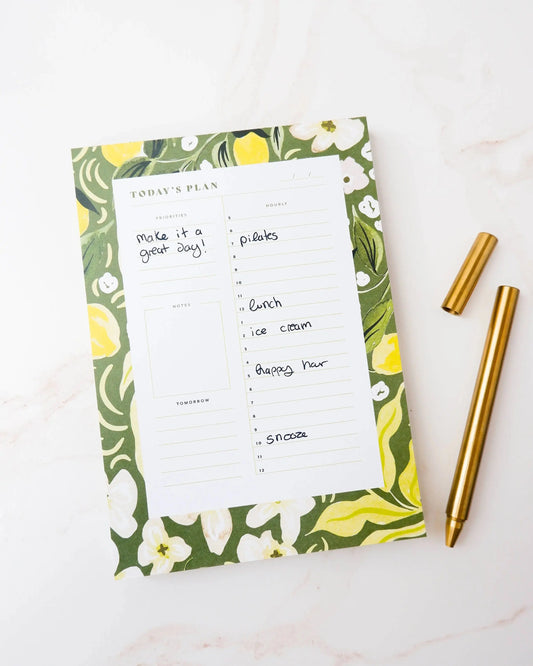 TODAY'S PLAN
/ /
PRIORITIES
make it a
great day!
NOTES
TOMORROW
HOURLY
5
6
7 pilates
8
9
10
11
12 lunch
1
2 ice cream
3
4
5 happy hour
6
7
8
9
10 snooze
11
12